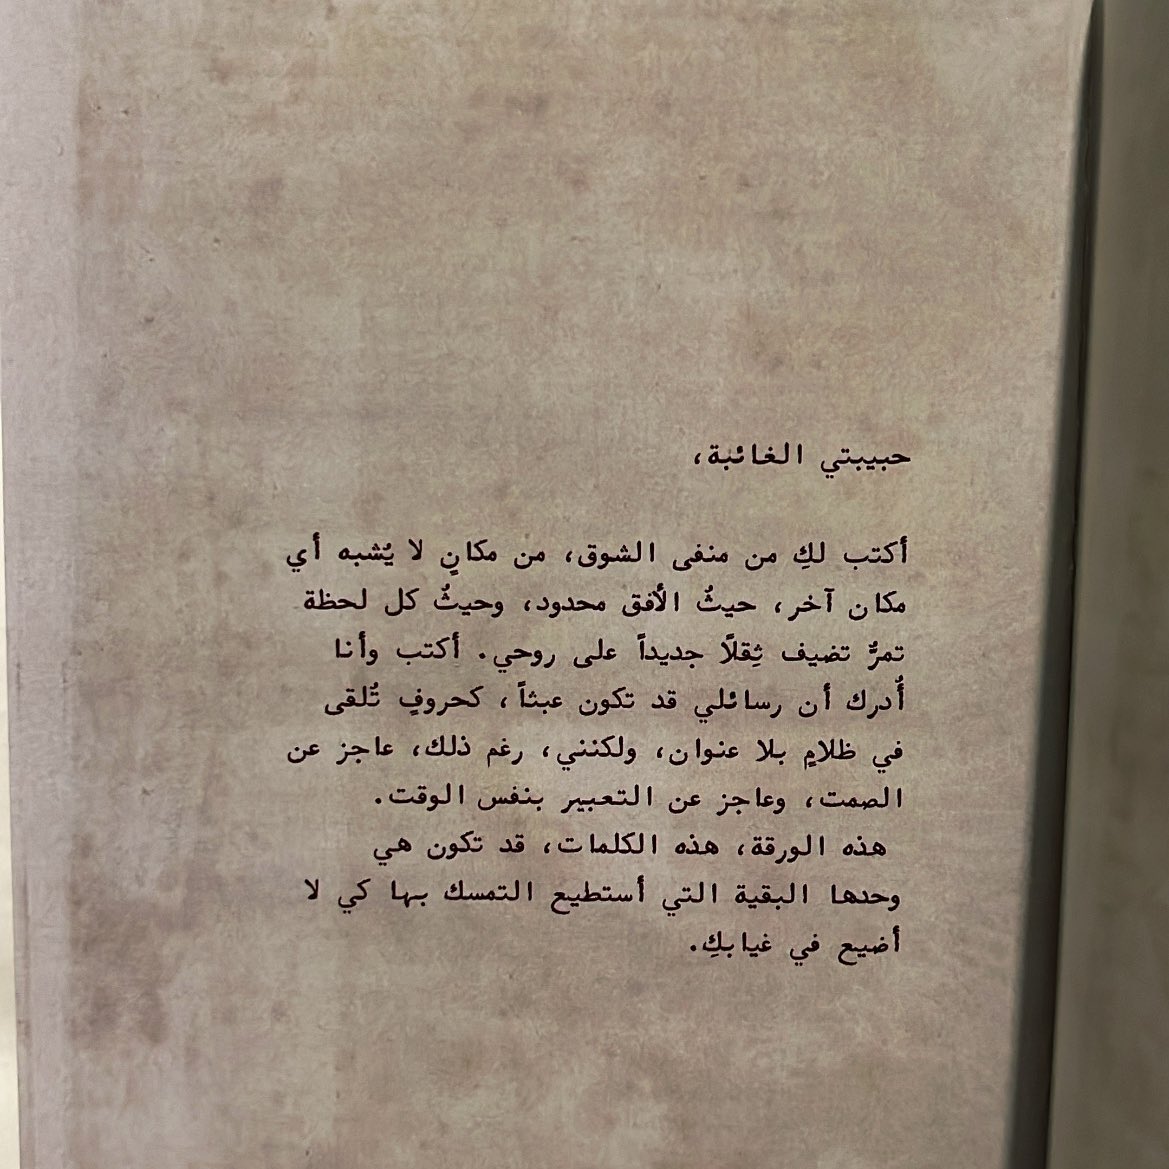 حبيبتي الغائبة،
أكتب لكِ من منفى الشوق، من مكانٍ لا يُشبه أي
مكان آخر، حيثُ الأفق محدود، وحيثُ كل لحظة
تمرُّ تضيف ثِقلاً جديداً على روحي. أكتب وأنا
أُدرك أن رسائلي قد تكون عبثاً، كحروفٍ تُلقى
في ظلامٍ بلا عنوان، ولكنني، رغم ذلك، عاجز عن
الصمت، وعاجز عن التعبير بنفس الوقت.
هذه الورقة، هذه الكلمات، قد تكون هي
وحدها البقية التي أستطيع التمسك بها كي لا
أضيع في غيابكِ.